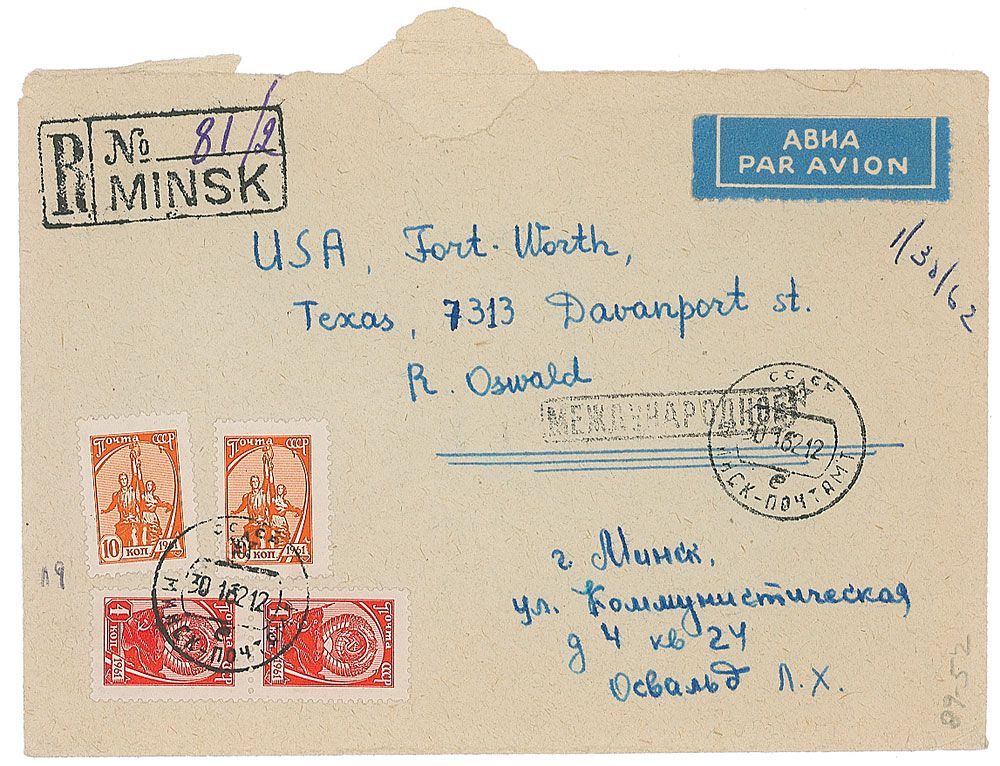 R № 81/2
MINSK
АВИА
PAR AVION
1/30/62
USA, Fort-Worth,
Texas, 7313 Davanport st.
R. Oswald
МЕЖДУНАРОДНОЕ
СССР
30 1 62 12
МИНСК-ПОЧТАМТ
Почта СССР
10 коп 1961
Почта СССР
10 коп 1961
СССР
30 1 62 12
МИНСК-ПОЧТ
1 коп 1961 Почта СССР
1 коп 1961 Почта СССР
г. Минск,
ул. Коммунистическая
д 4 кв 24
Освальд Л.Х.